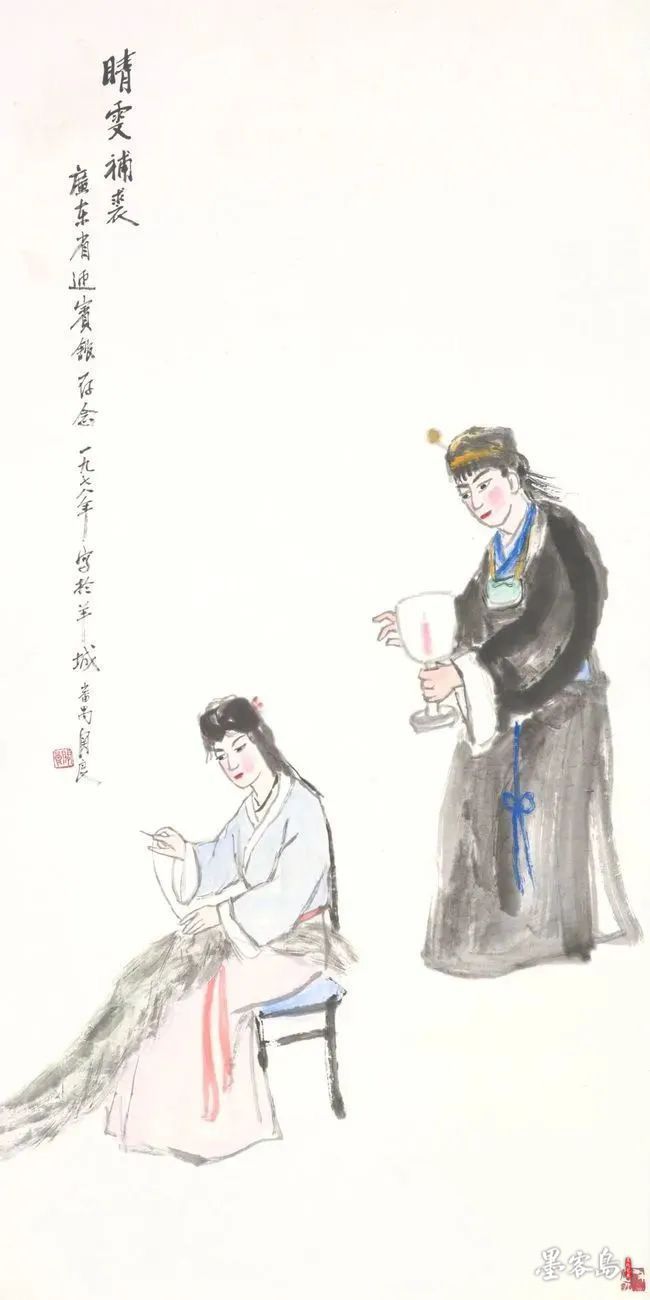 晴雯補裘
廣东省迎賓館存念 一九七八年 写於羊城 番禺関良
墨客岛